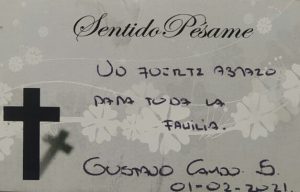 Sentido Pésame
UN FUERTE ABRAZO
PARA TODA LA
FAMILIA.
GUSTAVO S.
01-02-2021